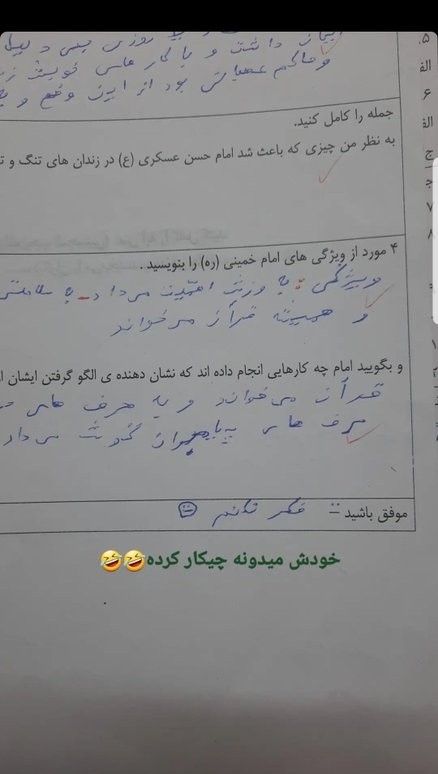 ۵.
ایمان داشت و با کار های خویش
و حاکم عصبانی بود از این وضع و
الف
۶
جمله را کامل کنید.
الف
به نظر من چیزی که باعث شد امام حسن عسکری (ع) در زندان های تنگ و
ج
۷
۸
۴ مورد از ویژگی های امام خمینی (ره) را بنویسید .
ویژگی : به ورزش اهمیت می داد - به سلامتی
و همیشه قرآن می خواند
و بگویید امام چه کارهایی انجام داده اند که نشان دهنده ی الگو گرفتن ایشان
قرآن می خواند و به حرف های
حرف های پیامبران گوش می داد
موفق باشید :: فکر نکنم
خودش میدونه چیکار کرده🤣🤣